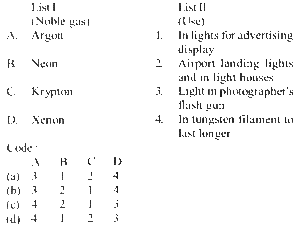 List I List II
(Noble gas) (Use)
A. Argon 1. In lights for advertising
display
B. Neon 2. Airport landing lights
and in light houses
C. Krypton 3. Light in photographer's
flash gun
D. Xenon 4. In tungsten filament to
last longer
Code :
A B C D
(a) 3 1 2 4
(b) 3 2 1 4
(c) 4 2 1 3
(d) 4 1 2 3